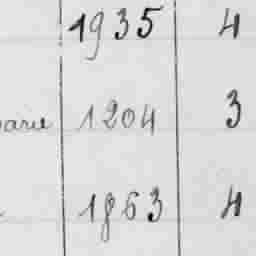 1935 4
1204 3
1863 4